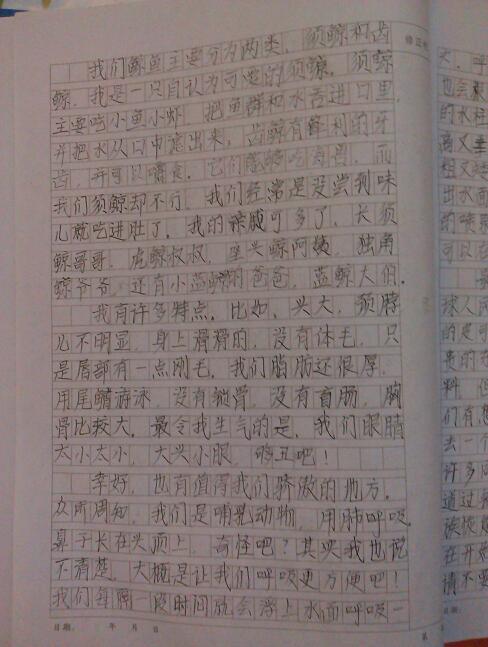 修正
我们鲸鱼主要分为两类，须鲸和齿
鲸。我是一只自认为可爱的须鲸。须鲸
主要吃小鱼小虾，把鱼群和水吞进口里，
并把水从口中滤出来，齿鲸有锋利的牙
齿，并可以嚼食，它们能够吃海兽，而
我们须鲸却不行，我们经常是没尝到味
儿就吃进肚了。我的亲戚可多了，长须
鲸哥哥，虎鲸叔叔，座头鲸阿姨，独角
鲸爷爷，还有小蓝鲸的爸爸，蓝鲸大伯。
我有许多特点。比如，头大，颈脖
儿不明显，身上滑滑的，没有体毛，只
是唇部有一点刚毛。我们脂肪还很厚，
用尾鳍游泳，没有锁骨，没有盲肠，胸
骨比较大。最令我生气的是，我们眼睛
太小太小，大头小眼，够丑吧！
幸好，也有值得我们骄傲的地方。
众所周知，我们是哺乳动物，用肺呼吸。
鼻子长在头顶上，奇怪吧？其实我也说
不清楚，大概是让我们呼吸更方便吧！
我们每隔一段时间就会浮上水面呼吸一
日期：　年　月　日　第
大，呼
也会
的水柱
高又
粗又
出水面
的喷
可以
球人
的是
贵的
料，但
们有
去一个
许多
道过
族
在开
请不要
日期：